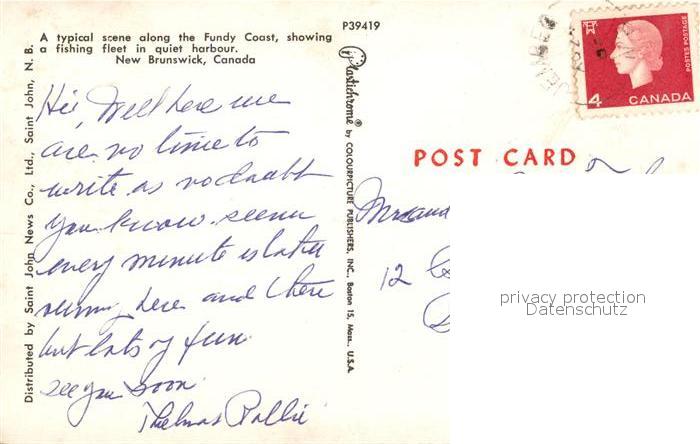 A typical scene along the Fundy Coast, showing
a fishing fleet in quiet harbour.
New Brunswick, Canada
P39419
Hi, Well here we
are. no time to
write as no doubt
you know. seems
every minute is
running here and there
but lots of fun
see you soon.
Thelma & Rollie
Distributed by Saint John News Co., Ltd., Saint John, N. B.
Plastichrome® by COLOURPICTURE PUBLISHERS, INC., Boston 15, Mass., U.S.A.
4 CANADA
POSTES POSTAGE
POST CARD
12
privacy protection
Datenschutz